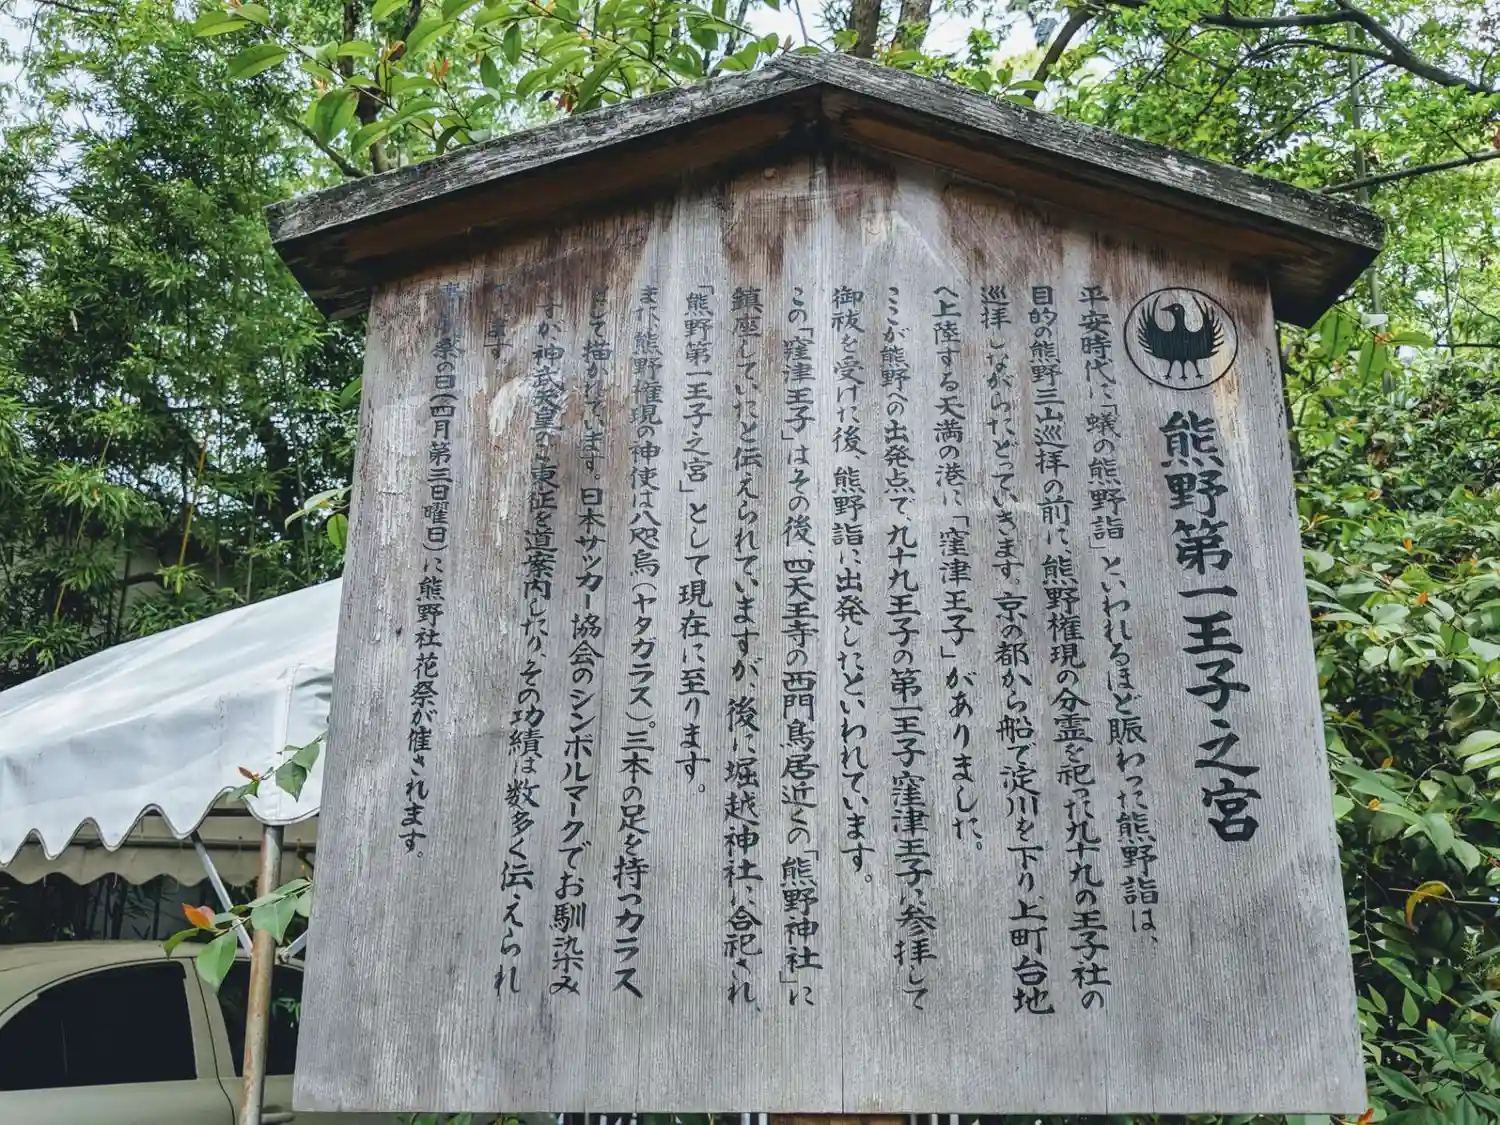 熊野第一王子之宮
平安時代に「蟻の熊野詣」といわれるほど賑わった熊野詣は、
目的の熊野三山巡拝の前に、熊野権現の分霊を祀った九十九の王子社の
巡拝しながらたどっていきます。京の都から船で淀川を下り、上町台地
へ上陸する天満の港に「窪津王子」がありました。
ここが熊野への出発点で、九十九王子の第一王子窪津王子に参拝して
御祓を受けた後、熊野詣に出発したといわれています。
この「窪津王子」はその後、四天王寺の西門鳥居近くの「熊野神社」に
鎮座していたと伝えられていますが、後に堀越神社に合祀され、
「熊野第一王子之宮」として現在に至ります。
また、熊野権現の神使は八咫烏（ヤタガラス）。三本の足を持つカラス
として描かれています。日本サッカー協会のシンボルマークでお馴染み
ですが、神武天皇のご東征を道案内したり、その功績は数多く伝えられ
ています。
祭の日（四月第三日曜日）に熊野社花祭が催されます。